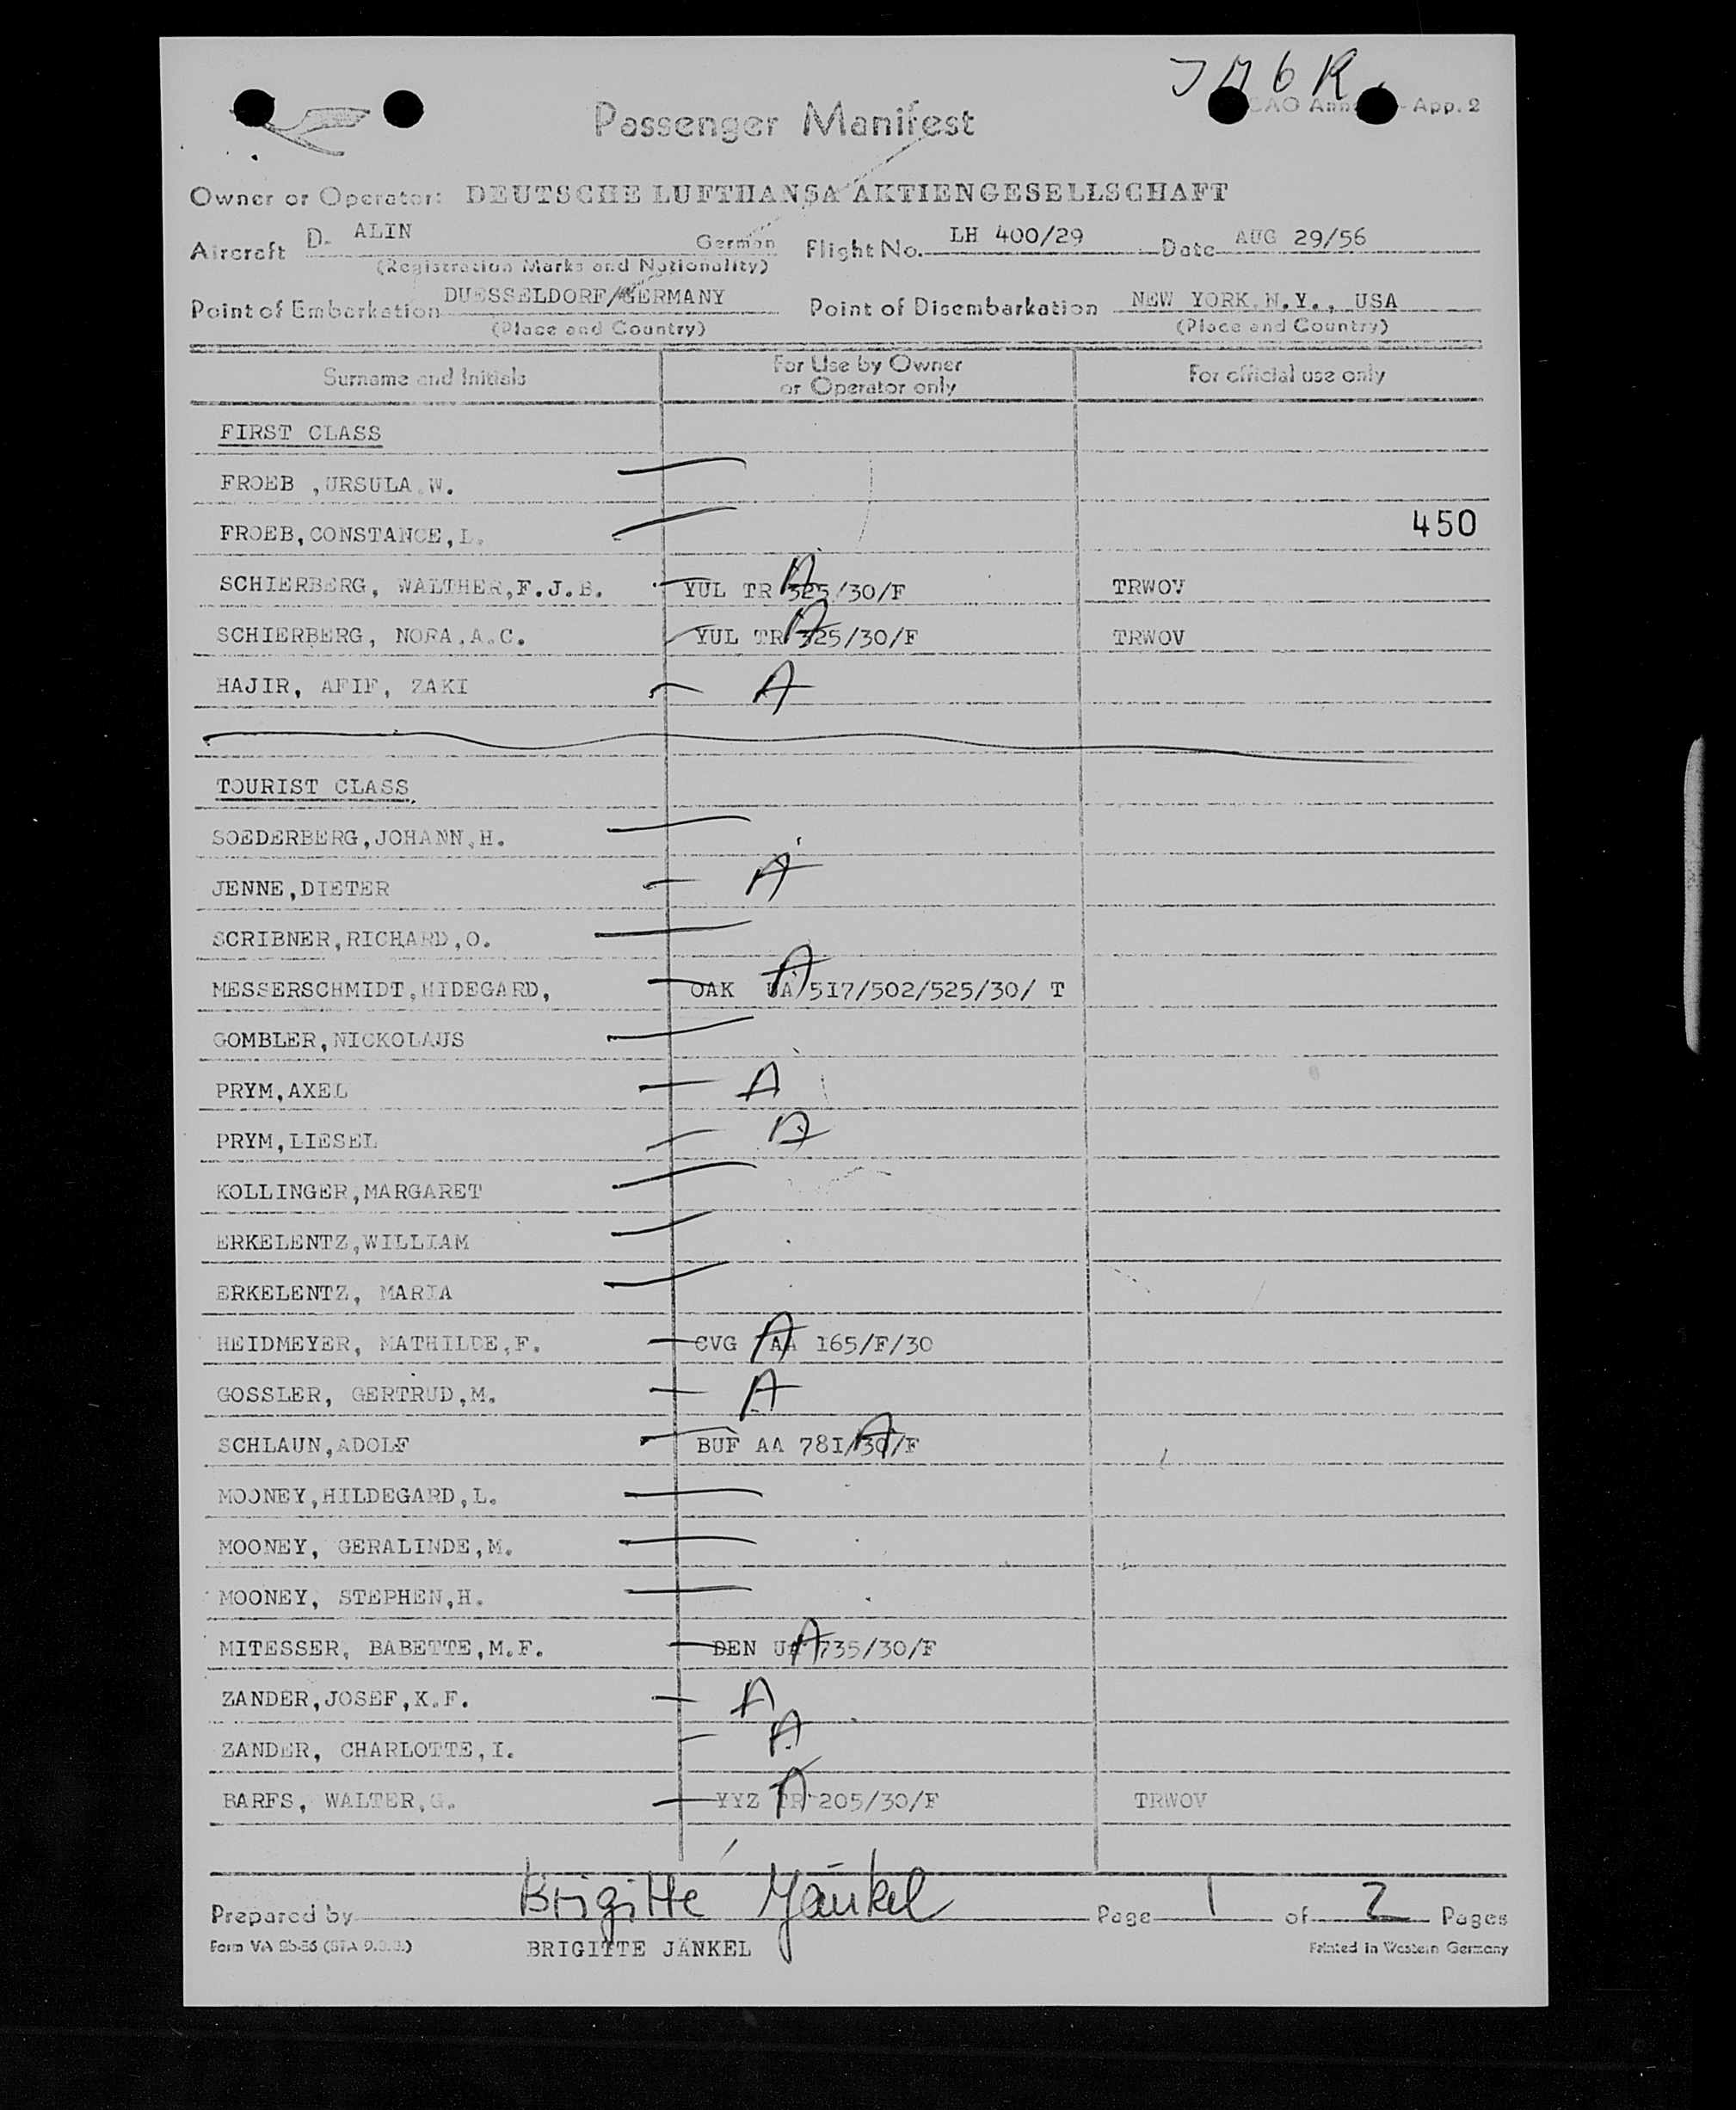 Passenger Manifest
App. 2
Owner or Operator: DEUTSCHE LUFTHANSA AKTIENGESELLSCHAFT
Aircraft D- ALIN German Flight No. LH 400/29 Date AUG 29/56
(Registration Marks and Nationality)
Point of Embarkation DUESSELDORF/GERMANY Point of Disembarkation NEW YORK.N.Y., USA
(Place and Country) (Place and Country)
Surname and Initials For Use by Owner or Operator only For official use only
FIRST CLASS
FROEB ,URSULA.W.
FROEB,CONSTANCE,L. 450
SCHIERBERG, WALTHER,F.J.B. YUL TR 325/30/F A TRWOV
SCHIERBERG, NORA.A.C. YUL TR 325/30/F A TRWOV
HAJIR, AFIF, ZAKI A
TOURIST CLASS
SOEDERBERG,JOHANN,H.
JENNE,DIETER A
SCRIBNER,RICHARD,O.
MESSERSCHMIDT,HIDEGARD, OAK UA 517/502/525/30/ T A
GOMBLER,NICKOLAUS
PRYM,AXEL A
PRYM,LIESEL A
KOLLINGER,MARGARET
ERKELENTZ,WILLIAM
ERKELENTZ, MARIA
HEIDMEYER, MATHILDE,F. CVG AA 165/F/30 A
GOSSLER, GERTRUD,M. A
SCHLAUN,ADOLF BUF AA 781/30/F A
MOONEY,HILDEGARD,L.
MOONEY, GERALINDE,M.
MOONEY, STEPHEN,H.
MITESSER, BABETTE,M.F. DEN UA 735/30/F A
ZANDER,JOSEF,K.F. A
ZANDER, CHARLOTTE,I. A
BARFS, WALTER,G. YYZ TR 205/30/F A TRWOV
Prepared by Brigitte Jänkel Page 1 of 2 Pages
BRIGITTE JÄNKEL Printed in Western Germany